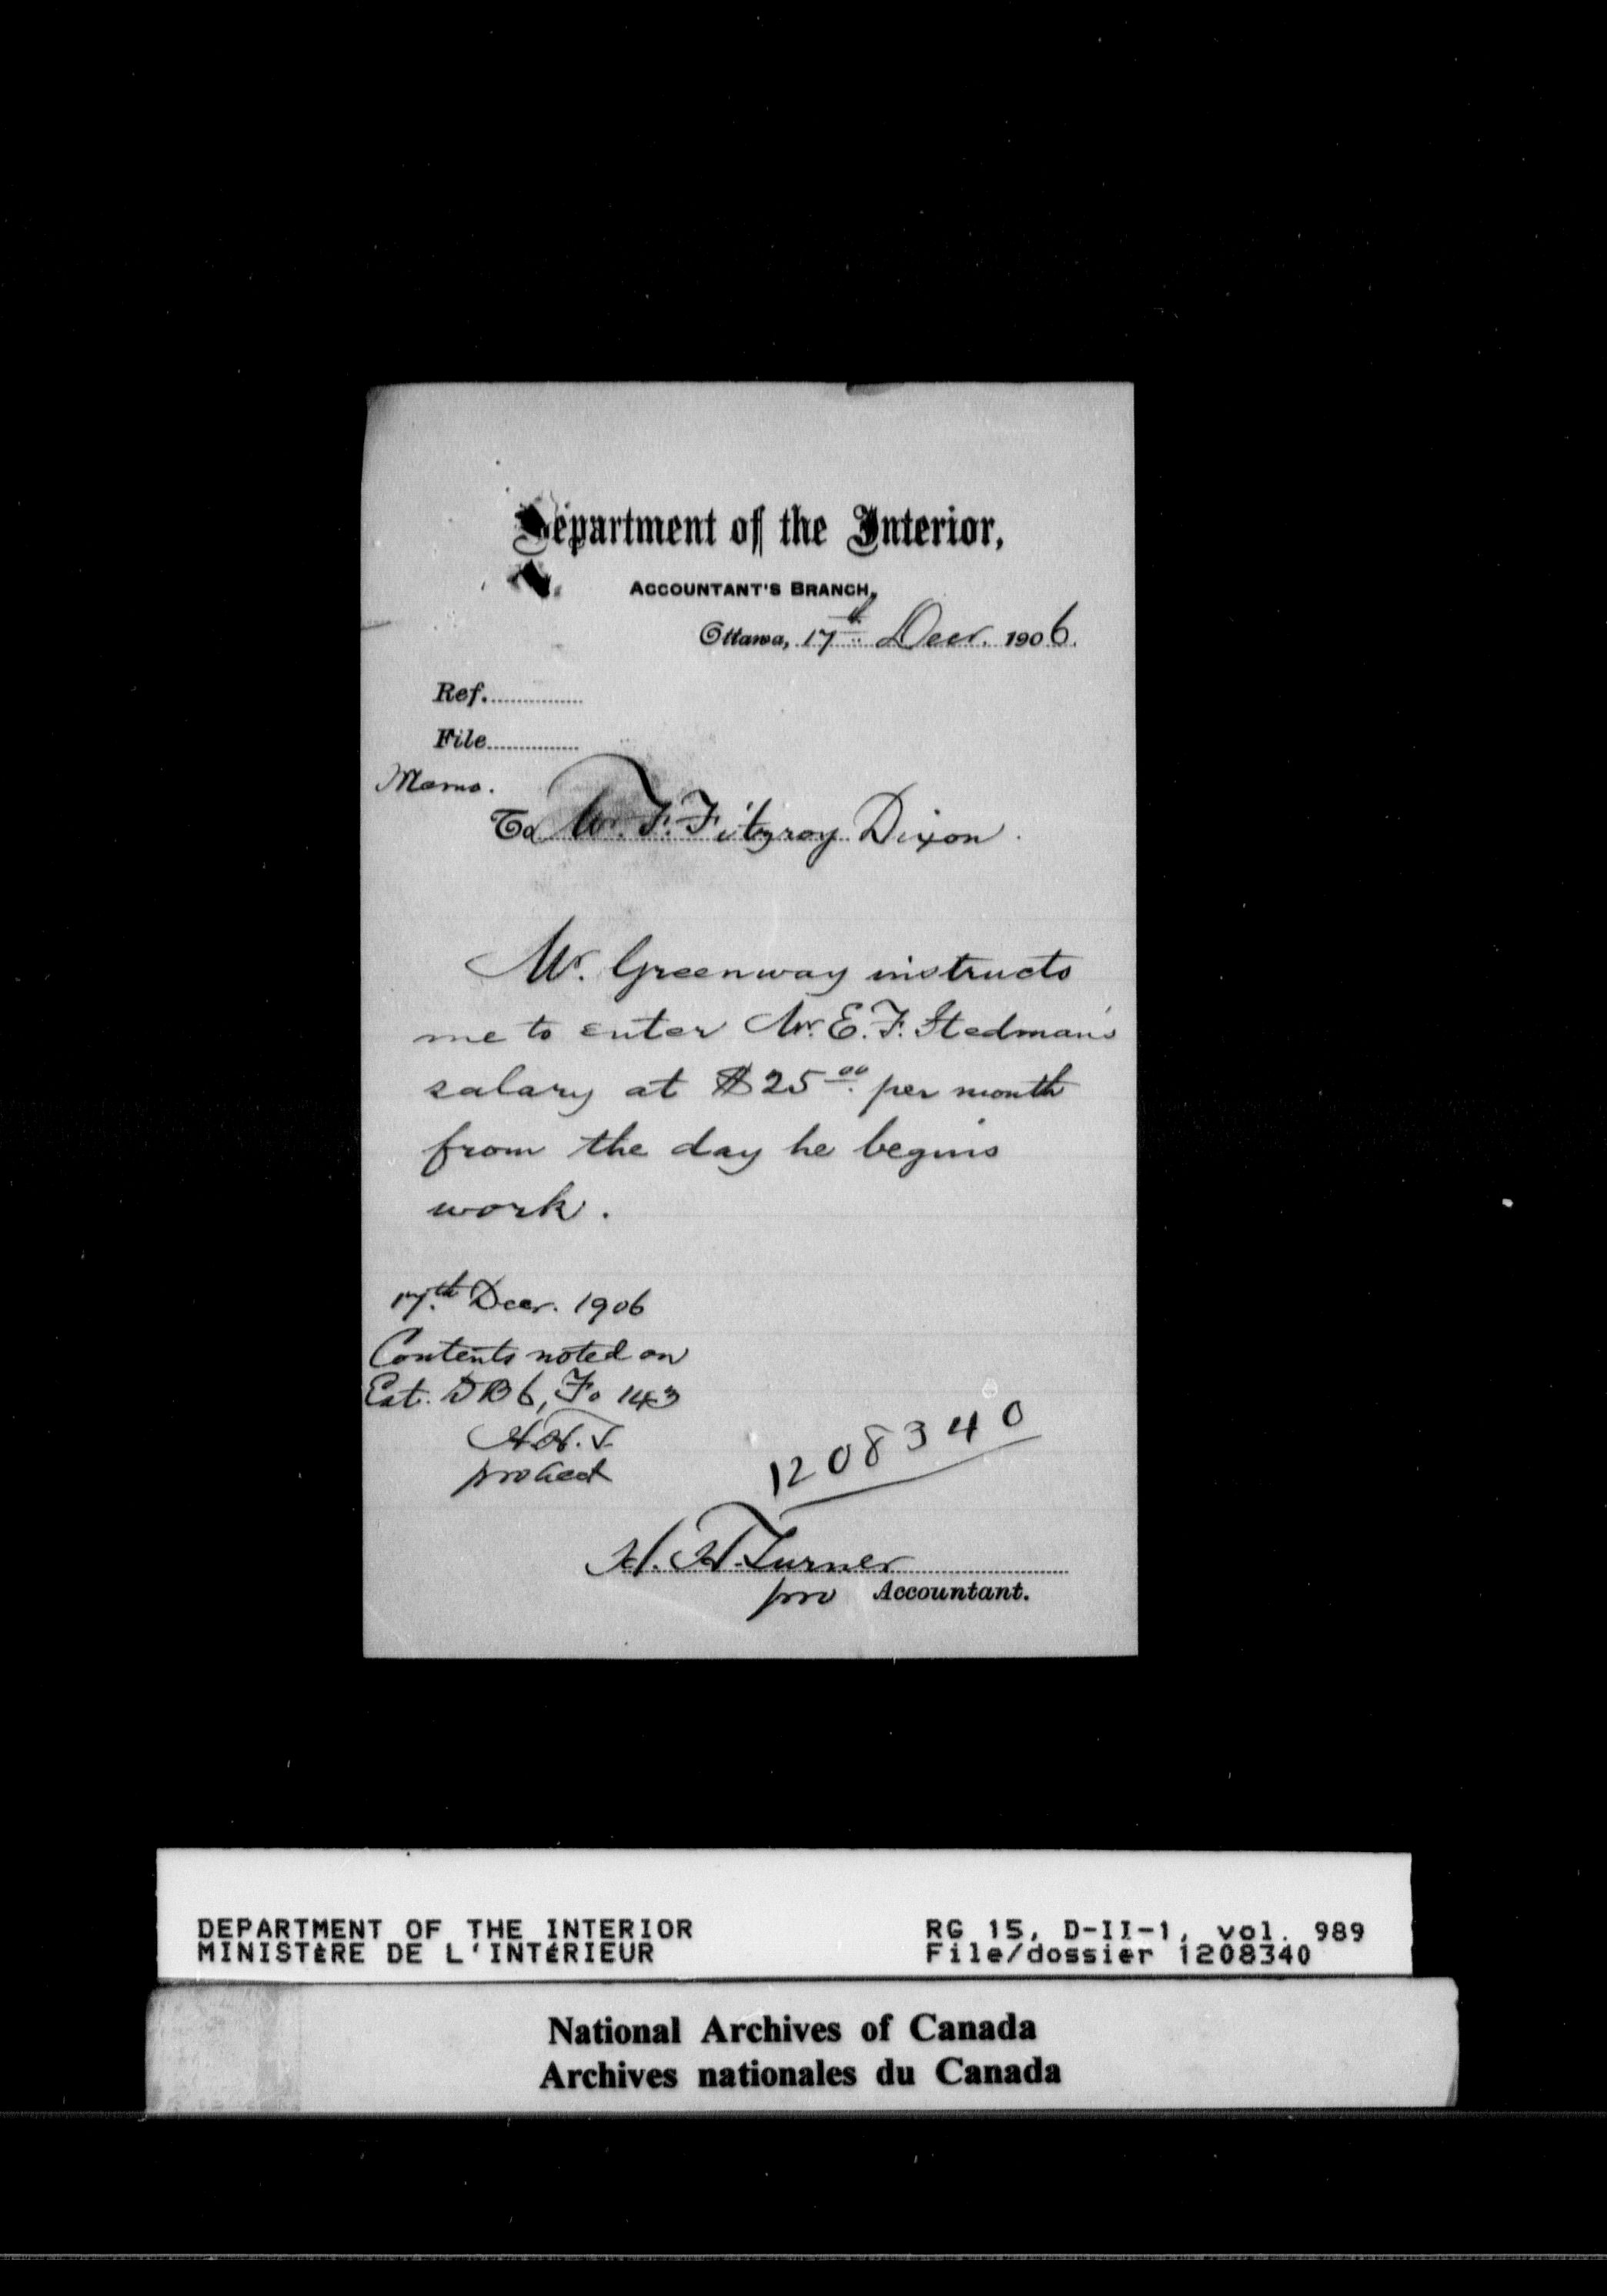 Department of the Interior,
ACCOUNTANT'S BRANCH,
Ottawa, 17th Decr. 1906.
Ref.
File
Memo.
To Mr. F. Fitzroy Dixon.
Mr. Greenway instructs
me to enter Mr. E. F. Stedman's
salary at $25.00 per month
from the day he begins
work.
17th Decr. 1906
Contents noted on
Est. DB6, Fo 143
H.H.T.
pro Acct
1208340
H. H. Turner
pro Accountant.
DEPARTMENT OF THE INTERIOR RG 15, D-II-1, vol. 989
MINISTÈRE DE L'INTÉRIEUR File/dossier 1208340
National Archives of Canada
Archives nationales du Canada